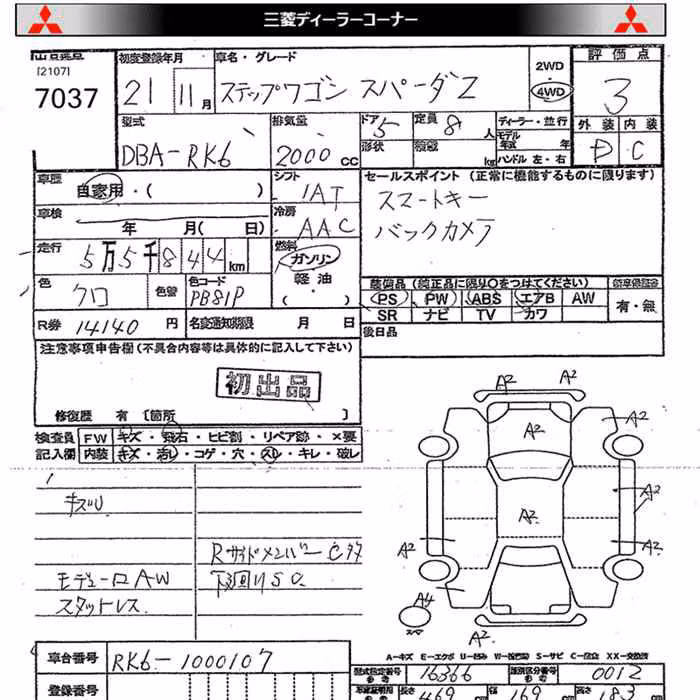 三菱ディーラーコーナー
[2107]
7037
初度登録年月
21 11月
車名・グレード
ステップワゴン スパーダZ
2WD
4WD
評価点
3
型式
DBA-RK6
排気量
2000 cc
ドア 5
形状
定員 8 人
積載 kg
ディーラー・並行
モデル年式 年
ハンドル 左・右
外装 内装
D C
車歴
自家用・( )
シフト
IAT
セールスポイント (正常に機能するものに限ります)
スマートキー
バックカメラ
車検
年 月( 日)
冷房
AAC
走行
5万5千844km
燃料
ガソリン
軽油
・( )
色
クロ
色替
色コード
PB81P
装備品(純正品に限り○をつけてください)
PS PW ABS エアB AW
SR ナビ TV カワ
有・無
R券 14140 円
名変通知期限 月 日
後日品
注意事項申告欄(不具合内容等は具体的に記入して下さい)
初出品
修復歴 有 [箇所 ]
検査員
記入欄
FW キズ・飛石・ヒビ割・リペア跡・×要
内装 キズ・汚レ・コゲ・穴・スレ・キレ・破レ
キズU
Rサイドメンバー C97
モデューロAW
下回りSO.
スタットレス
A2
A2
A2
A2
A2
A2
A2
A2
A2
A4
スペア
A2
A-キズ E-エクボ U-凹み W-波 S-サビ C-腐食 XX-交換済
車台番号
RK6-1000107
登録番号
型式指定番号
16366
類別区分番号
0012
長さ
469
幅
169
高さ
183